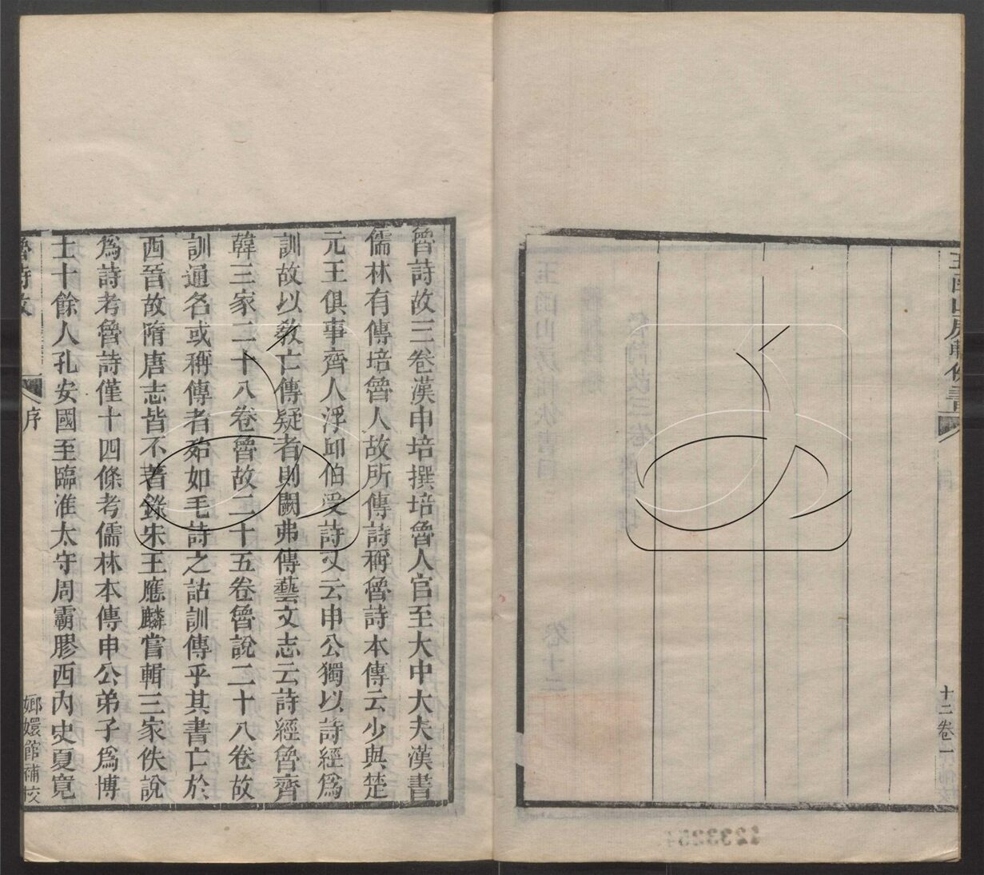 玉函山房輯佚書
十二卷
魯詩故三卷漢申培撰培魯人官至大中大夫漢書
儒林有傳培魯人故所傳詩稱魯詩本傳云少與楚
元王俱事齊人浮邱伯受詩又云申公獨以詩經爲
訓故以敎亡傳疑者則闕弗傳藝文志云詩經魯齊
韓三家二十八卷魯故二十五卷魯說二十八卷故
訓通名或稱傳者殆如毛詩之詁訓傳乎其書亡於
西晉故隋唐志皆不著錄宋王應麟嘗輯三家佚說
爲詩考魯詩僅十四條考儒林本傳申公弟子爲博
士十餘人孔安國至臨淮太守周霸膠西內史夏寬
魯詩故
序
嫏嬛館補校